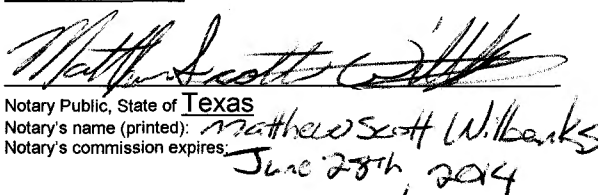 Matthew Scott Wilbanks
Notary Public, State of Texas
Notary's name (printed): Matthew Scott Wilbanks
Notary's commission expires: June 28th, 2014